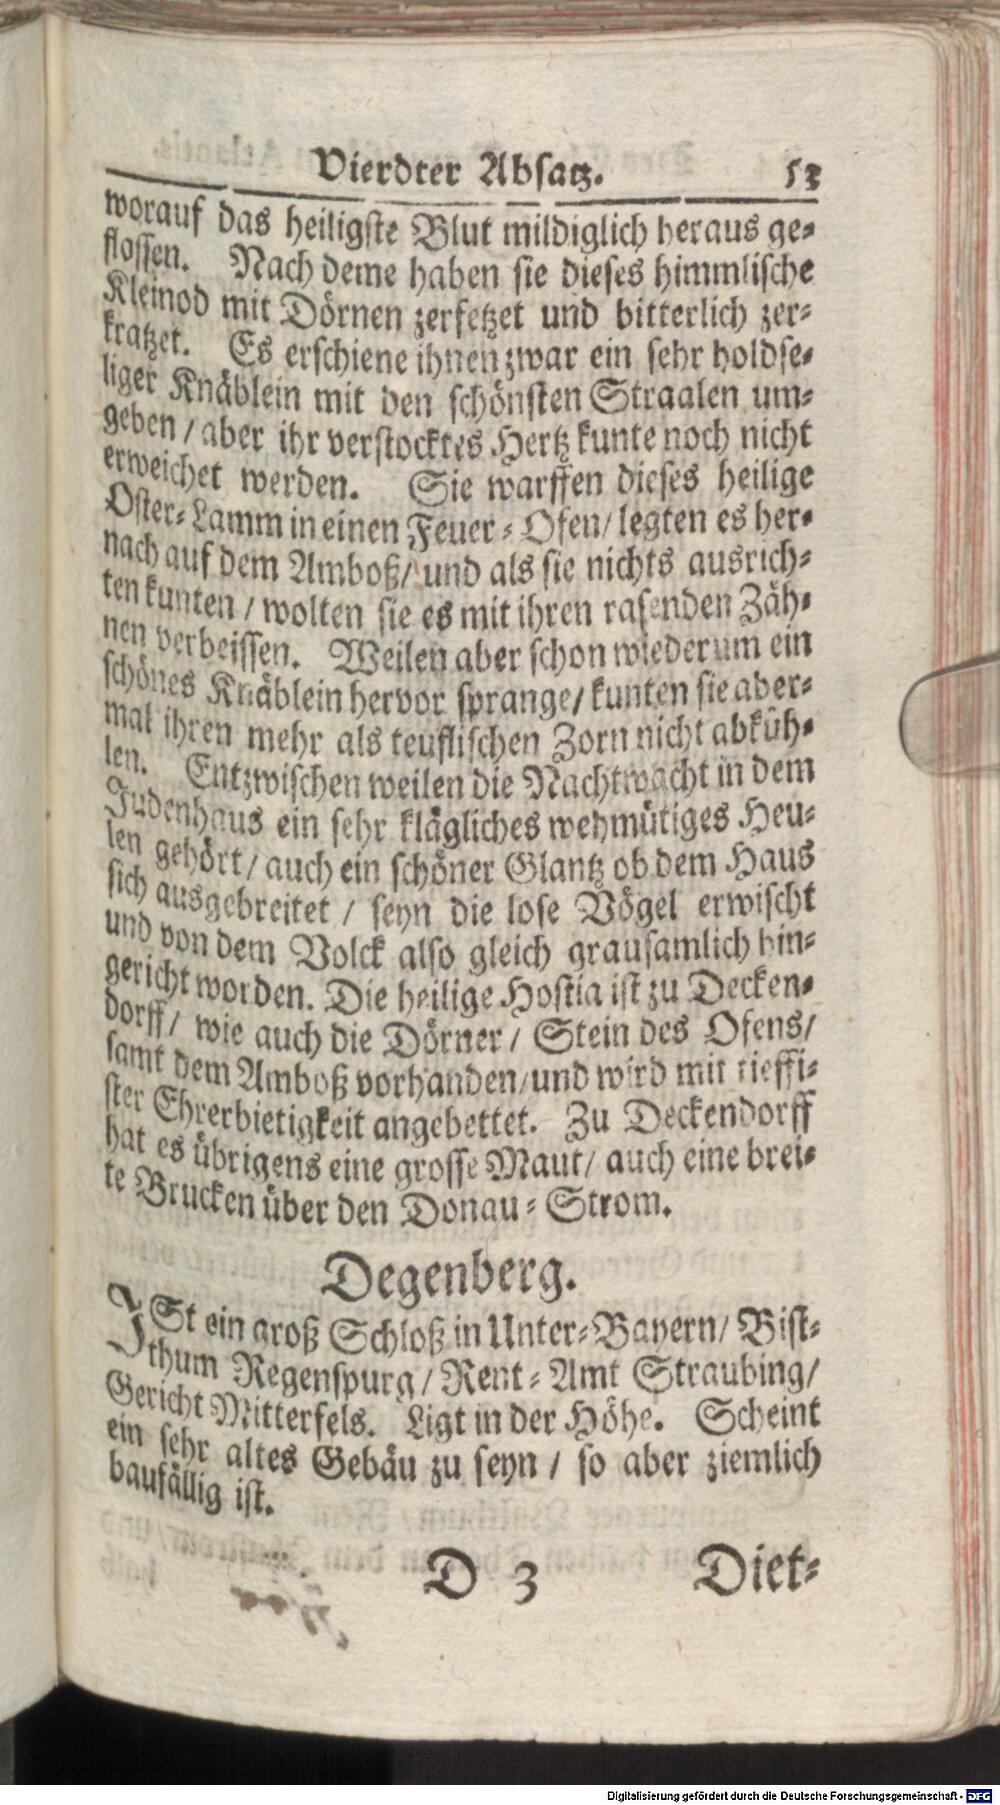 Vierdter Absatz. 53
worauf das heiligste Blut mildiglich heraus ge-
flossen. Nach deme haben sie dieses himmlische
Kleinod mit Dörnen zerfetzet und bitterlich zer-
kratzet. Es erschiene ihnen zwar ein sehr holdse-
liger Knäblein mit den schönsten Straalen um-
geben / aber ihr verstocktes Hertz kunte noch nicht
erweichet werden. Sie warffen dieses heilige
Oster-Lamm in einen Feuer-Ofen/ legten es her-
nach auf dem Amboß/ und als sie nichts ausrich-
ten kunten / wolten sie es mit ihren rasenden Zäh-
nen verbeissen. Weilen aber schon wiederum ein
schönes Knäblein hervor sprange/ kunten sie aber-
mal ihren mehr als teuflischen Zorn nicht abküh-
len. Entzwischen weilen die Nachtwacht in dem
Judenhaus ein sehr klägliches wehmütiges Heu-
len gehört/ auch ein schöner Glantz ob dem Haus
sich ausgebreitet / seyn die lose Vögel erwischt
und von dem Volck also gleich grausamlich hin-
gericht worden. Die heilige Hostia ist zu Decken-
dorff/ wie auch die Dörner/ Stein des Ofens/
samt dem Amboß vorhanden/ und wird mit tieffi-
ster Ehrerbietigkeit angebettet. Zu Deckendorff
hat es übrigens eine grosse Maut/ auch eine brei-
te Brucken über den Donau-Strom.
Degenberg.
JSt ein groß Schloß in Unter-Bayern/ Bist-
thum Regenspurg/ Rent-Amt Straubing/
Gericht Mitterfels. Ligt in der Höhe. Scheint
ein sehr altes Gebäu zu seyn / so aber ziemlich
baufällig ist.
D 3 Diet-
Digitalisierung gefördert durch die Deutsche Forschungsgemeinschaft - DFG